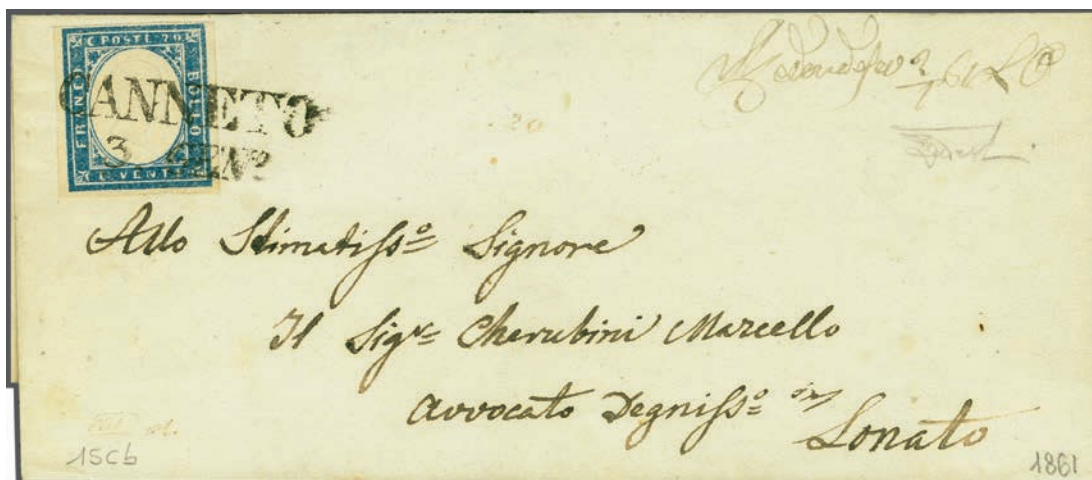 C POSTE 20
FRANCO
BOLLO
C VENTI
CANNETO
3 GEN°
20
Allo Stimatisso Signore
Il Sigr Cherubini Marcello
Avvocato Degnisso
Lonato
15Cb
1861